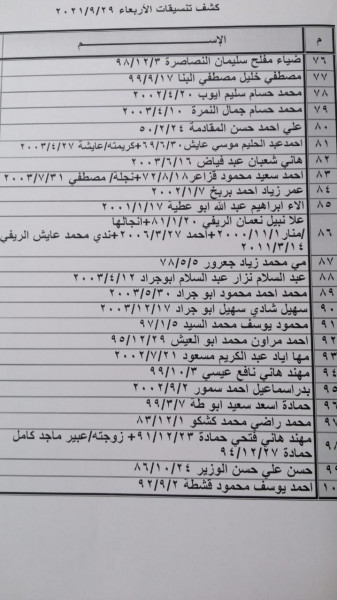 كشف تنسيقات الأربعاء ٢٠٢١/٩/٢٩
م الإســـــم
٧٦ ضياء مفلح سليمان النصاصرة ٩٨/١٢/٣
٧٧ مصطفي خليل مصطفي البنا ٩٩/٩/١٧
٧٨ محمد حسام سليم ايوب ٢٠٠٢/٤/٢٠
٧٩ محمد حسام جمال النمرة ٢٠٠٣/٤/١٠
٨٠ علي احمد حسن المقادمة ٥٠/٢/٢٤
٨١ احمدعبد الحليم موسي عايش ٦٩/٦/٣٠+كريمته/عايشة ٢٠٠٣/٤/٢٧
٨٢ هاني شعبان عبد فياض ٢٠٠٣/٦/١٦
٨٣ احمد سعيد محمود قزاعر ٧٢/٨/١٨+نجلة/ مصطفي ٢٠٠٣/٧/٣١
٨٤ عمر زياد احمد بربخ ٢٠٠٢/١/٧
٨٥ الاء ابراهيم عبد الله أبو عطية ٢٠٠١/١/١٧
٨٦ علا نبيل نعمان الريفي ٨١/١/٢٠+انجالها
/منار ٢٠٠٠/١١/١+احمد ٢٠٠٦/٣/٢٧+ندي محمد عايش الريفي
٢٠١١/٣/١٤
٨٧ مي محمد زياد جعرور ٧٨/٥/٥
٨٨ عبد السلام نزار عبد السلام ابوجراد ٢٠٠٣/٤/١٢
٨٩ محمد احمد محمود ابو جراد ٢٠٠٣/٥/٣٠
٩٠ سهيل شادي سهيل ابو جراد ٢٠٠٣/١٢/١٧
٩١ محمود يوسف محمد السيد ٩٧/١/٥
٩٢ احمد مراون محمد ابو العيش ٩٥/١٢/٢٩
٩٣ مها اياد عبد الكريم مسعود ٢٠٠٢/٧/٢١
٩٤ مهند هاني نافع عيسي ٩٩/١٠/٣
٩٥ بدراسماعيل احمد سمور ٢٠٠٢/٩/٢
٩٦ حمادة اسعد سعيد ابو طة ٩٩/٣/٧
٩٧ محمد راضي محمد كشكو ٨٣/١٢/١
٩٨ مهند هاني فتحي حمادة ٩١/١٢/٢٣+ زوجته/عبير ماجد كامل
حمادة ٩٤/١٢/٢٧
٩ حسن علي حسن الوزير ٨٦/١٠/٢٤
١٠ احمد يوسف محمود قشطة ٩٢/٩/٢